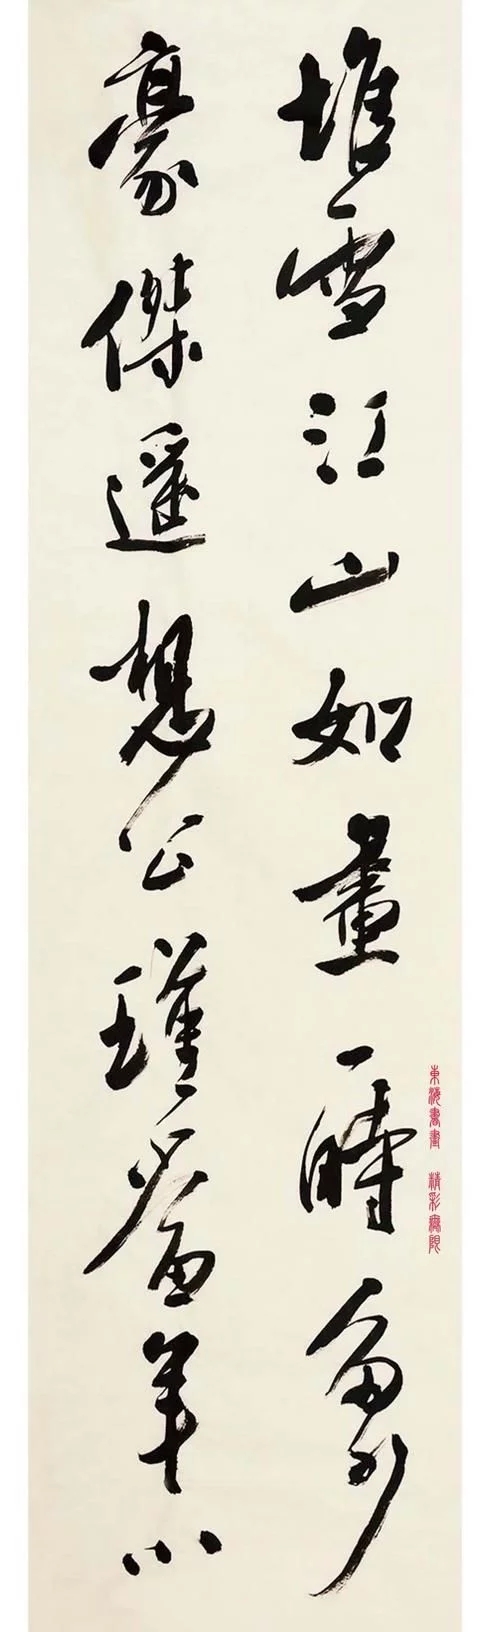 堆雪江山如畫一時多少
豪傑遙想公瑾當年小
東海書畫 精彩無限